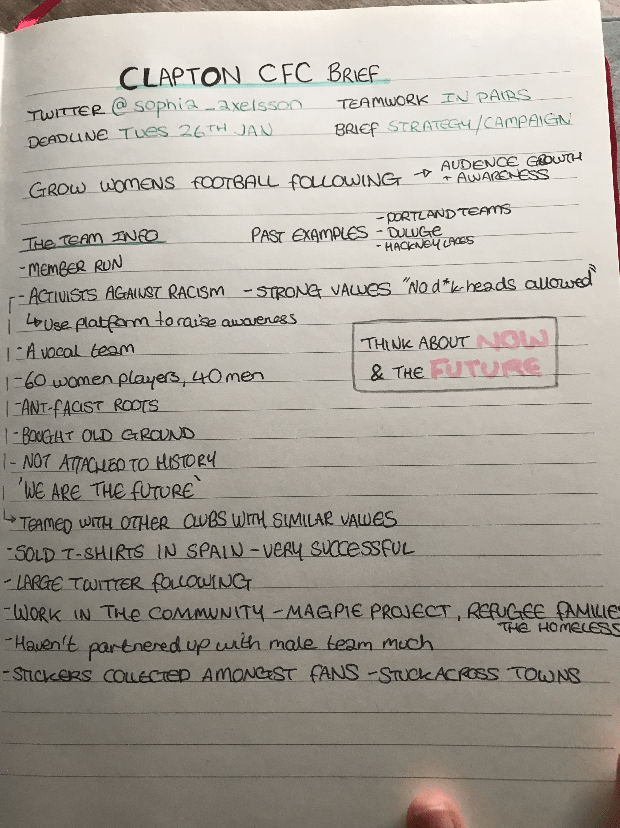 CLAPTON CFC BRIEF
TWITTER @sophia_axelsson
TEAMWORK IN PAIRS
DEADLINE TUES 26TH JAN
BRIEF STRATEGY/CAMPAIGN
GROW WOMENS FOOTBALL FOLLOWING → AUDIENCE GROWTH
+ AWARENESS
THE TEAM INFO
PAST EXAMPLES - PORTLAND TEAMS
- DULUGE
- HACKNEY LACES
- MEMBER RUN
- ACTIVISTS AGAINST RACISM - STRONG VALUES "No d*k heads allowed"
↳ Use platform to raise awareness
- A vocal team
THINK ABOUT NOW
& THE FUTURE
- 60 women players, 40 men
- ANT-FACIST ROOTS
- BOUGHT OLD GROUND
- NOT ATTACHED TO HISTORY
'WE ARE THE FUTURE'
↳ TEAMED WITH OTHER CLUBS WITH SIMILAR VALUES
- SOLD T-SHIRTS IN SPAIN - VERY SUCCESSFUL
- LARGE TWITTER FOLLOWING
- WORK IN THE COMMUNITY - MAGPIE PROJECT, REFUGEE FAMILIES
THE HOMELESS
- Haven't partnered up with male team much
- STICKERS COLLECTED AMONGST FANS - STUCK ACROSS TOWNS